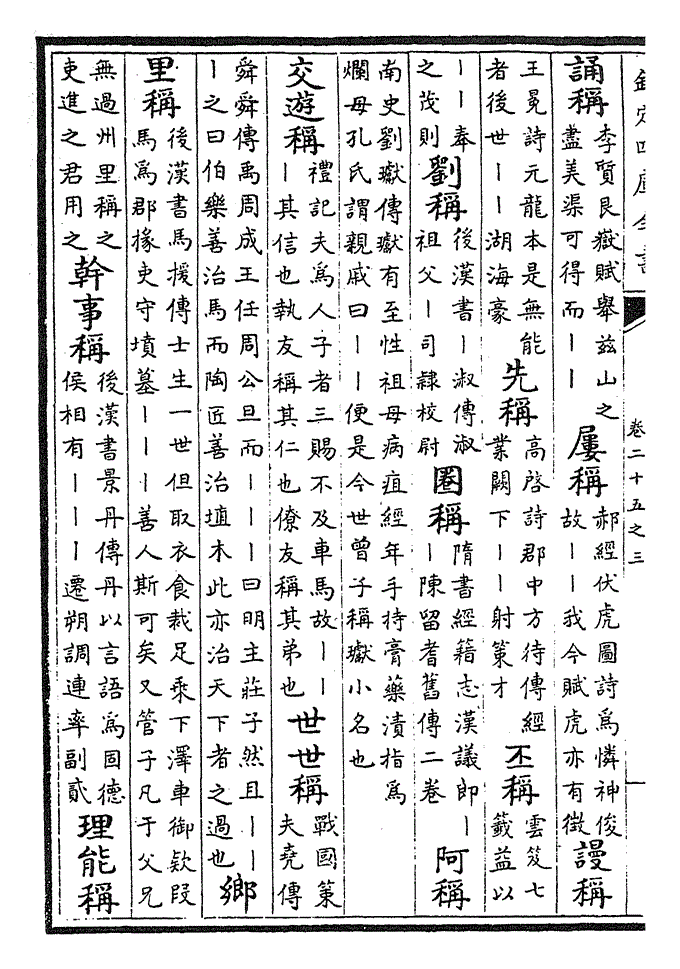 欽定四庫全書
卷二十五之三
誦稱李質艮嶽賦舉兹山之盡美渠可得而丨丨屢稱郝經伏虎圖詩爲憐神俊故丨丨我今賦虎亦有徵謾稱
王冕詩元龍本是無能者後世丨丨湖海豪先稱高啓詩郡中方待傳經業闕下丨丨射策才丕稱雲笈七籤益以
丨丨奉之茂則劉稱後漢書丨淑傳淑祖父丨司隸校尉圈稱隋書經籍志漢議郎丨丨陳留耆舊傳二卷阿稱
南史劉瓛傳瓛有至性祖母病疽經年手持膏藥漬指爲爛母孔氏謂親戚曰丨丨便是今世曾子稱瓛小名也
交遊稱禮記夫爲人子者三賜不及車馬故丨丨丨其信也執友稱其仁也僚友稱其弟也世世稱戰國策夫堯傳
舜舜傳禹周成王任周公旦而丨丨丨曰明主莊子然且丨丨丨之曰伯樂善治馬而陶匠善治埴木此亦治天下者之過也鄉
里稱後漢書馬援傳士生一世但取衣食裁足乘下澤車御款段馬爲郡掾吏守墳墓丨丨丨善人斯可矣又管子凡于父兄
無過州里稱之吏進之君用之幹事稱後漢書景丹傳丹以言語爲固德侯相有丨丨丨遷朔調連率副貳理能稱